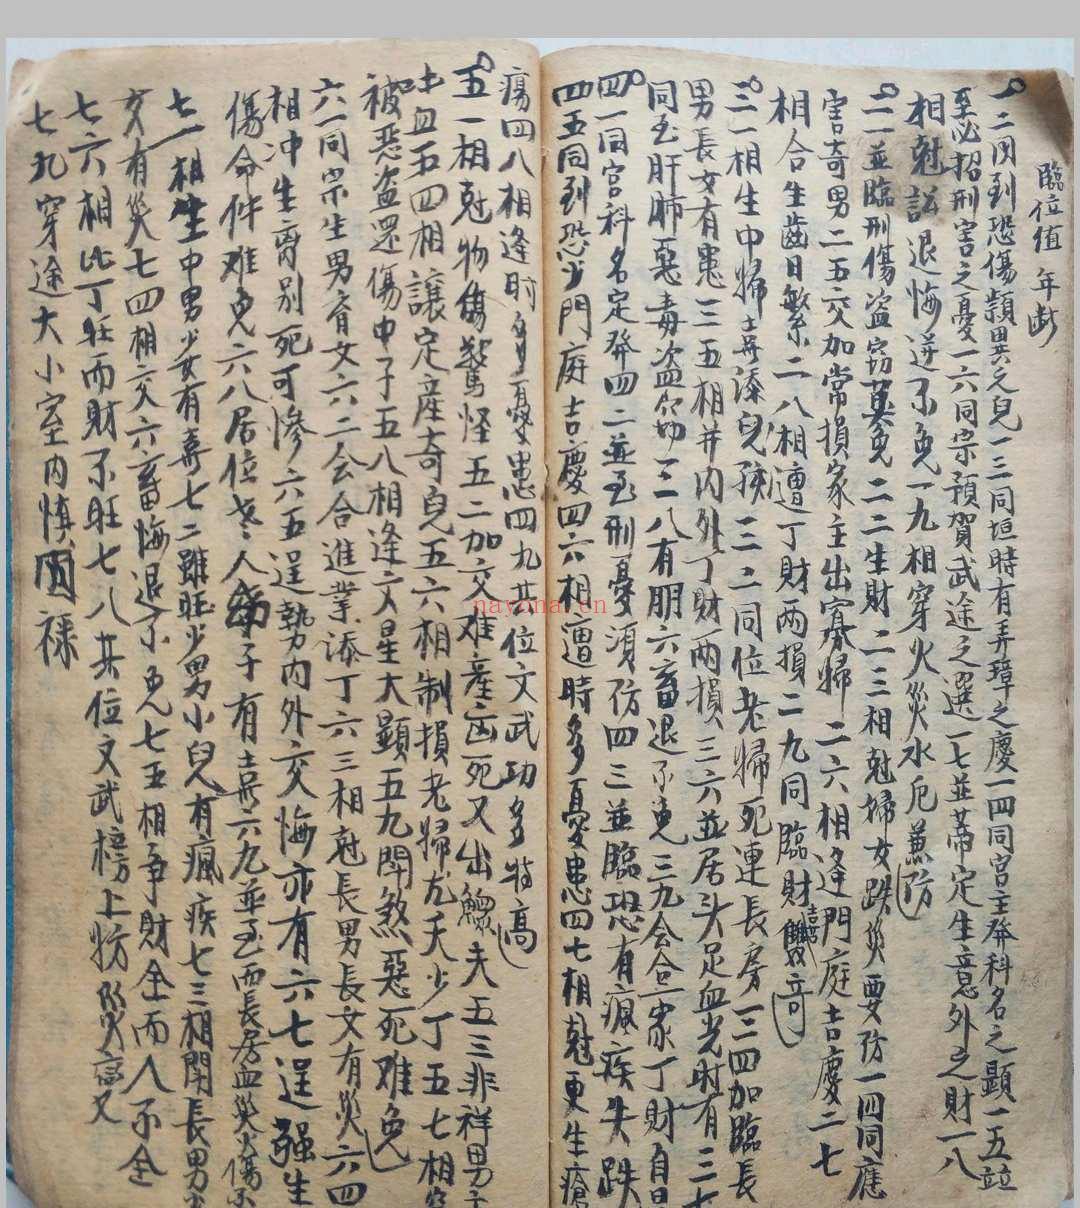 臨位值年断
一二同到恐傷顙異之兒一三同垣時有弄璋之慶一四同宮主發科名之顯一五並
至必招刑害之憂一六同宗預賀武途之選一七並蒂定生意外之財一八
相尅訟退悔迸不免一九相穿火災水厄兼防
二一並臨刑傷盜窃莫免二二生財二三相尅婦女跌災要防二四同應
害奇男二五交加常損家主出寡婦二六相逢門庭吉慶二七
相合生齒日繁二八相遭丁財兩損二九同臨財喜雙奇
三一相生中婦喜添兒孩三二同位老婦死連長房三四加臨長
男長女有患三五相并内外丁財兩損三六並居头足血光时有三七
同至肝肺惡毒盗劫三八有朋六畜退不免三九会合一家丁財自
四一同宫科名定發四二並至刑憂須防四三並臨恐有瘋疾失跌
四五同到恐少門庭吉慶四六相遭時多憂患四七相尅更生瘡
瘍四八相逢时多憂患四九共位文武功多特高
五一相尅物傷驚怪五二加交难產凶死又出鰥夫五三非祥男子
吐血五四相讓定産奇兒五六相制損老婦尅夭少丁五七相
被惡盗還傷中子五八相逢文星大顯五九閗煞惡死难免
六一同宗生男育文六二会合進業添丁六三相尅長男長女有災六四
相冲生离别死可惨六五逞勢内外交悔亦有六七逞强生
傷命件难免六八居位老人弟子有喜六九並至而長房血災火傷
七一相生中男少女有喜七二雖旺少男小兒有瘋疾七三相閗長男
女有災七四相交六畜悔退不免七五相争財全而人不全
七六相比丁旺而財不旺七八共位文武榜上妨災禍又
七九穿途大小室内慎回禄
nayona.cn